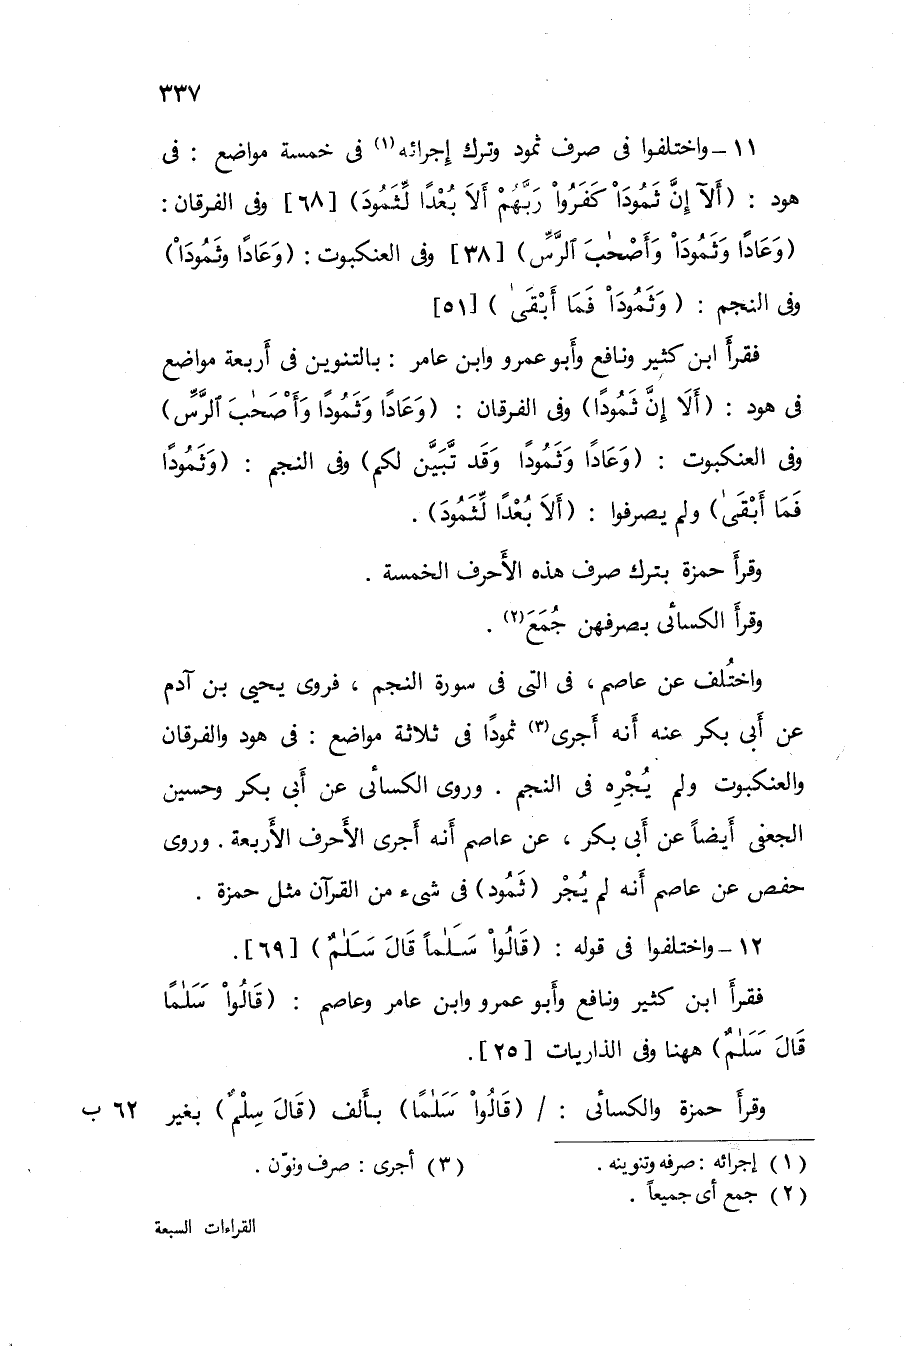 ٣٣٧
١١ – واختلفوا فى صرف ثمود وترك إجرائه(١) فى خمسة مواضع : فى
هود : (أَلَآ إِنَّ ثَمُودَاْ كَفَرُواْ رَبَّهُمْ أَلَا بُعْدًا لِّثَمُودَ) [٦٨] وفى الفرقان :
(وَعَادًا وَثَمُودَاْ وَأَصْحَٰبَ ٱلرَّسِّ) [٣٨] وفى العنكبوت : (وَعَادًا وثَمُودَاْ)
وفى النجم : (وَثَمُودَاْ فَمَا أَبْقَىٰ) [٥١]
فقرأ ابن كثير ونافع وأبو عمرو وابن عامر : بالتنوين فى أربعة مواضع
فى هود : (أَلَا إِنَّ ثَمُودًا) وفى الفرقان : (وَعَادًا وَثَمُودًا وَأَصْحَٰبَ ٱلرَّسِّ)
وفى العنكبوت : (وَعَادًا وَثَمُودًا وَقَد تَّبَيَّن لكم) وفى النجم : (وَثَمُودًا
فَمَا أَبْقَىٰ) ولم يصرفوا : (أَلَا بُعْدًا لِّثَمُودَ) .
وقرأ حمزة بترك صرف هذه الأحرف الخمسة .
وقرأ الكسائى بصرفهن جُمَعَ(٢) .
واختُلف عن عاصم ، فى التى فى سورة النجم ، فروى يحيى بن آدم
عن أبى بكر عنه أنه أجرى(٣) ثمودًا فى ثلاثة مواضع : فى هود والفرقان
والعنكبوت ولم يُجْرِه فى النجم . وروى الكسائى عن أبى بكر وحسين
الجعفى أيضاً عن أبى بكر ، عن عاصم أنه أجرى الأحرف الأربعة . وروى
حفص عن عاصم أنه لم يُجْرِ (ثَمُود) فى شىء من القرآن مثل حمزة .
١٢ – واختلفوا فى قوله : (قَالُواْ سَلَٰماً قَالَ سَلَٰمٌ) [٦٩].
فقرأ ابن كثير ونافع وأبو عمرو وابن عامر وعاصم : (قَالُواْ سَلَٰمًا
قَالَ سَلَٰمٌ) ههنا وفى الذاريات [٢٥].
وقرأ حمزة والكسائى : / (قَالُواْ سَلَٰمًا) بألف (قَالَ سِلْمٌ) بغير ٦٢ ب
(١) إجرائه : صرفه وتنوينه . (٣) أجرى : صرف ونوّن .
(٢) جمع أى جميعاً .
القراءات السبعة